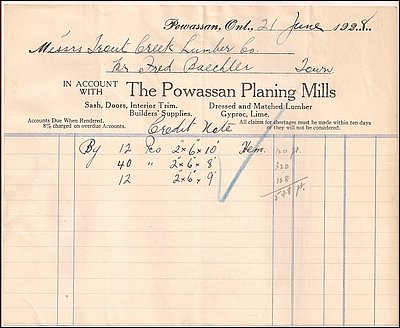 Powassan, Ont., 21 June 1928.
Messrs Trout Creek Lumber Co.
Per Fred Baechler Town.
IN ACCOUNT WITH The Powassan Planing Mills
Sash, Doors, Interior Trim. Dressed and Matched Lumber
Builders' Supplies. Gyproc, Lime.
Accounts Due When Rendered. All claims for shortages must be made within ten days
8% charged on overdue Accounts. or they will not be considered.
Credit Note
By 12 Pcs 2"x6"x10' Hem. 120 ft.
40 " 2"x6"x8' 320
12 2"x6"x9' 108
548 ft.